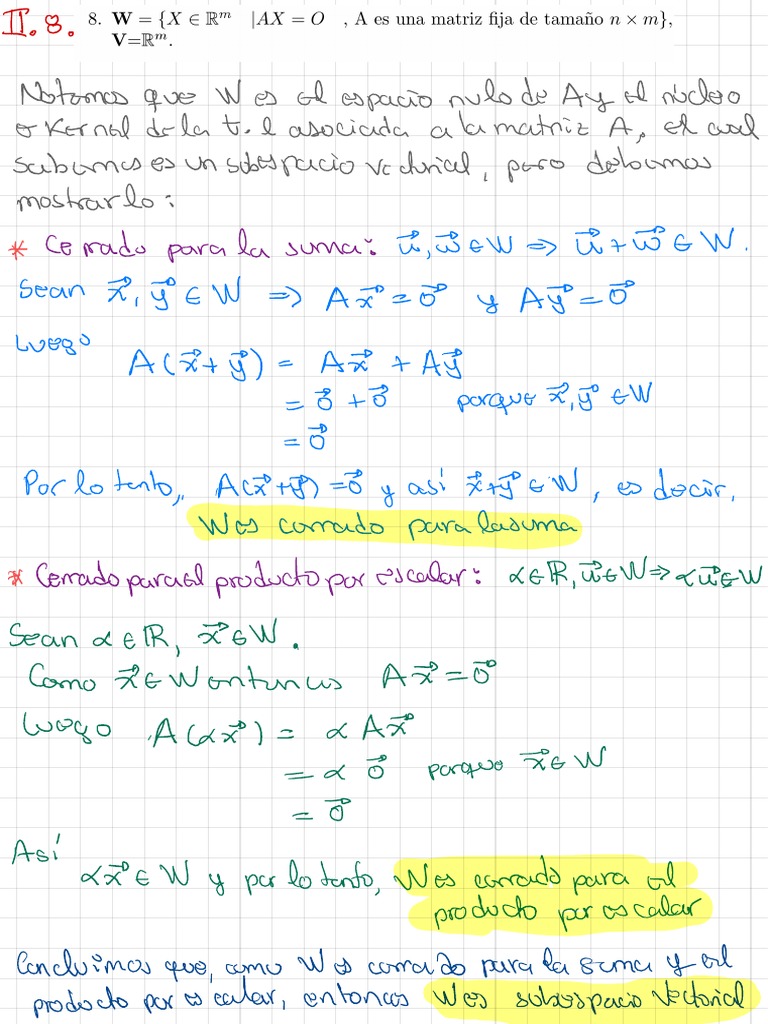 II.8. 8. W = {X ∈ ℝᵐ |AX = O , A es una matriz fija de tamaño n × m},
V=ℝᵐ.
Notamos que W es el espacio nulo de A y el núcleo
o Kernel de la t.l asociada a la matriz A, el cual
sabemos es un subespacio vectorial, pero debemos
mostrarlo:
* Cerrado para la suma: u⃗, w⃗ ∈ W ⇒ u⃗ + w⃗ ∈ W.
Sean x⃗, y⃗ ∈ W ⇒ Ax⃗ = 0⃗ y Ay⃗ = 0⃗
Luego
A(x⃗ + y⃗) = Ax⃗ + Ay⃗
= 0⃗ + 0⃗ porque x⃗, y⃗ ∈ W
= 0⃗
Por lo tanto, A(x⃗+y⃗) = 0⃗ y así x⃗+y⃗ ∈ W, es decir,
W es cerrado para la suma
* Cerrado para el producto por escalar: α∈ℝ, w⃗∈W ⇒ αw⃗∈W
Sean α ∈ ℝ, x⃗ ∈ W.
Como x⃗ ∈ W entonces Ax⃗ = 0⃗
Luego A(αx⃗) = α Ax⃗
= α 0⃗ porque x⃗ ∈ W
= 0⃗
Así
αx⃗ ∈ W y por lo tanto, W es cerrado para el
producto por escalar
Concluimos que, como W es cerrado para la suma y el
producto por escalar, entonces W es subespacio vectorial